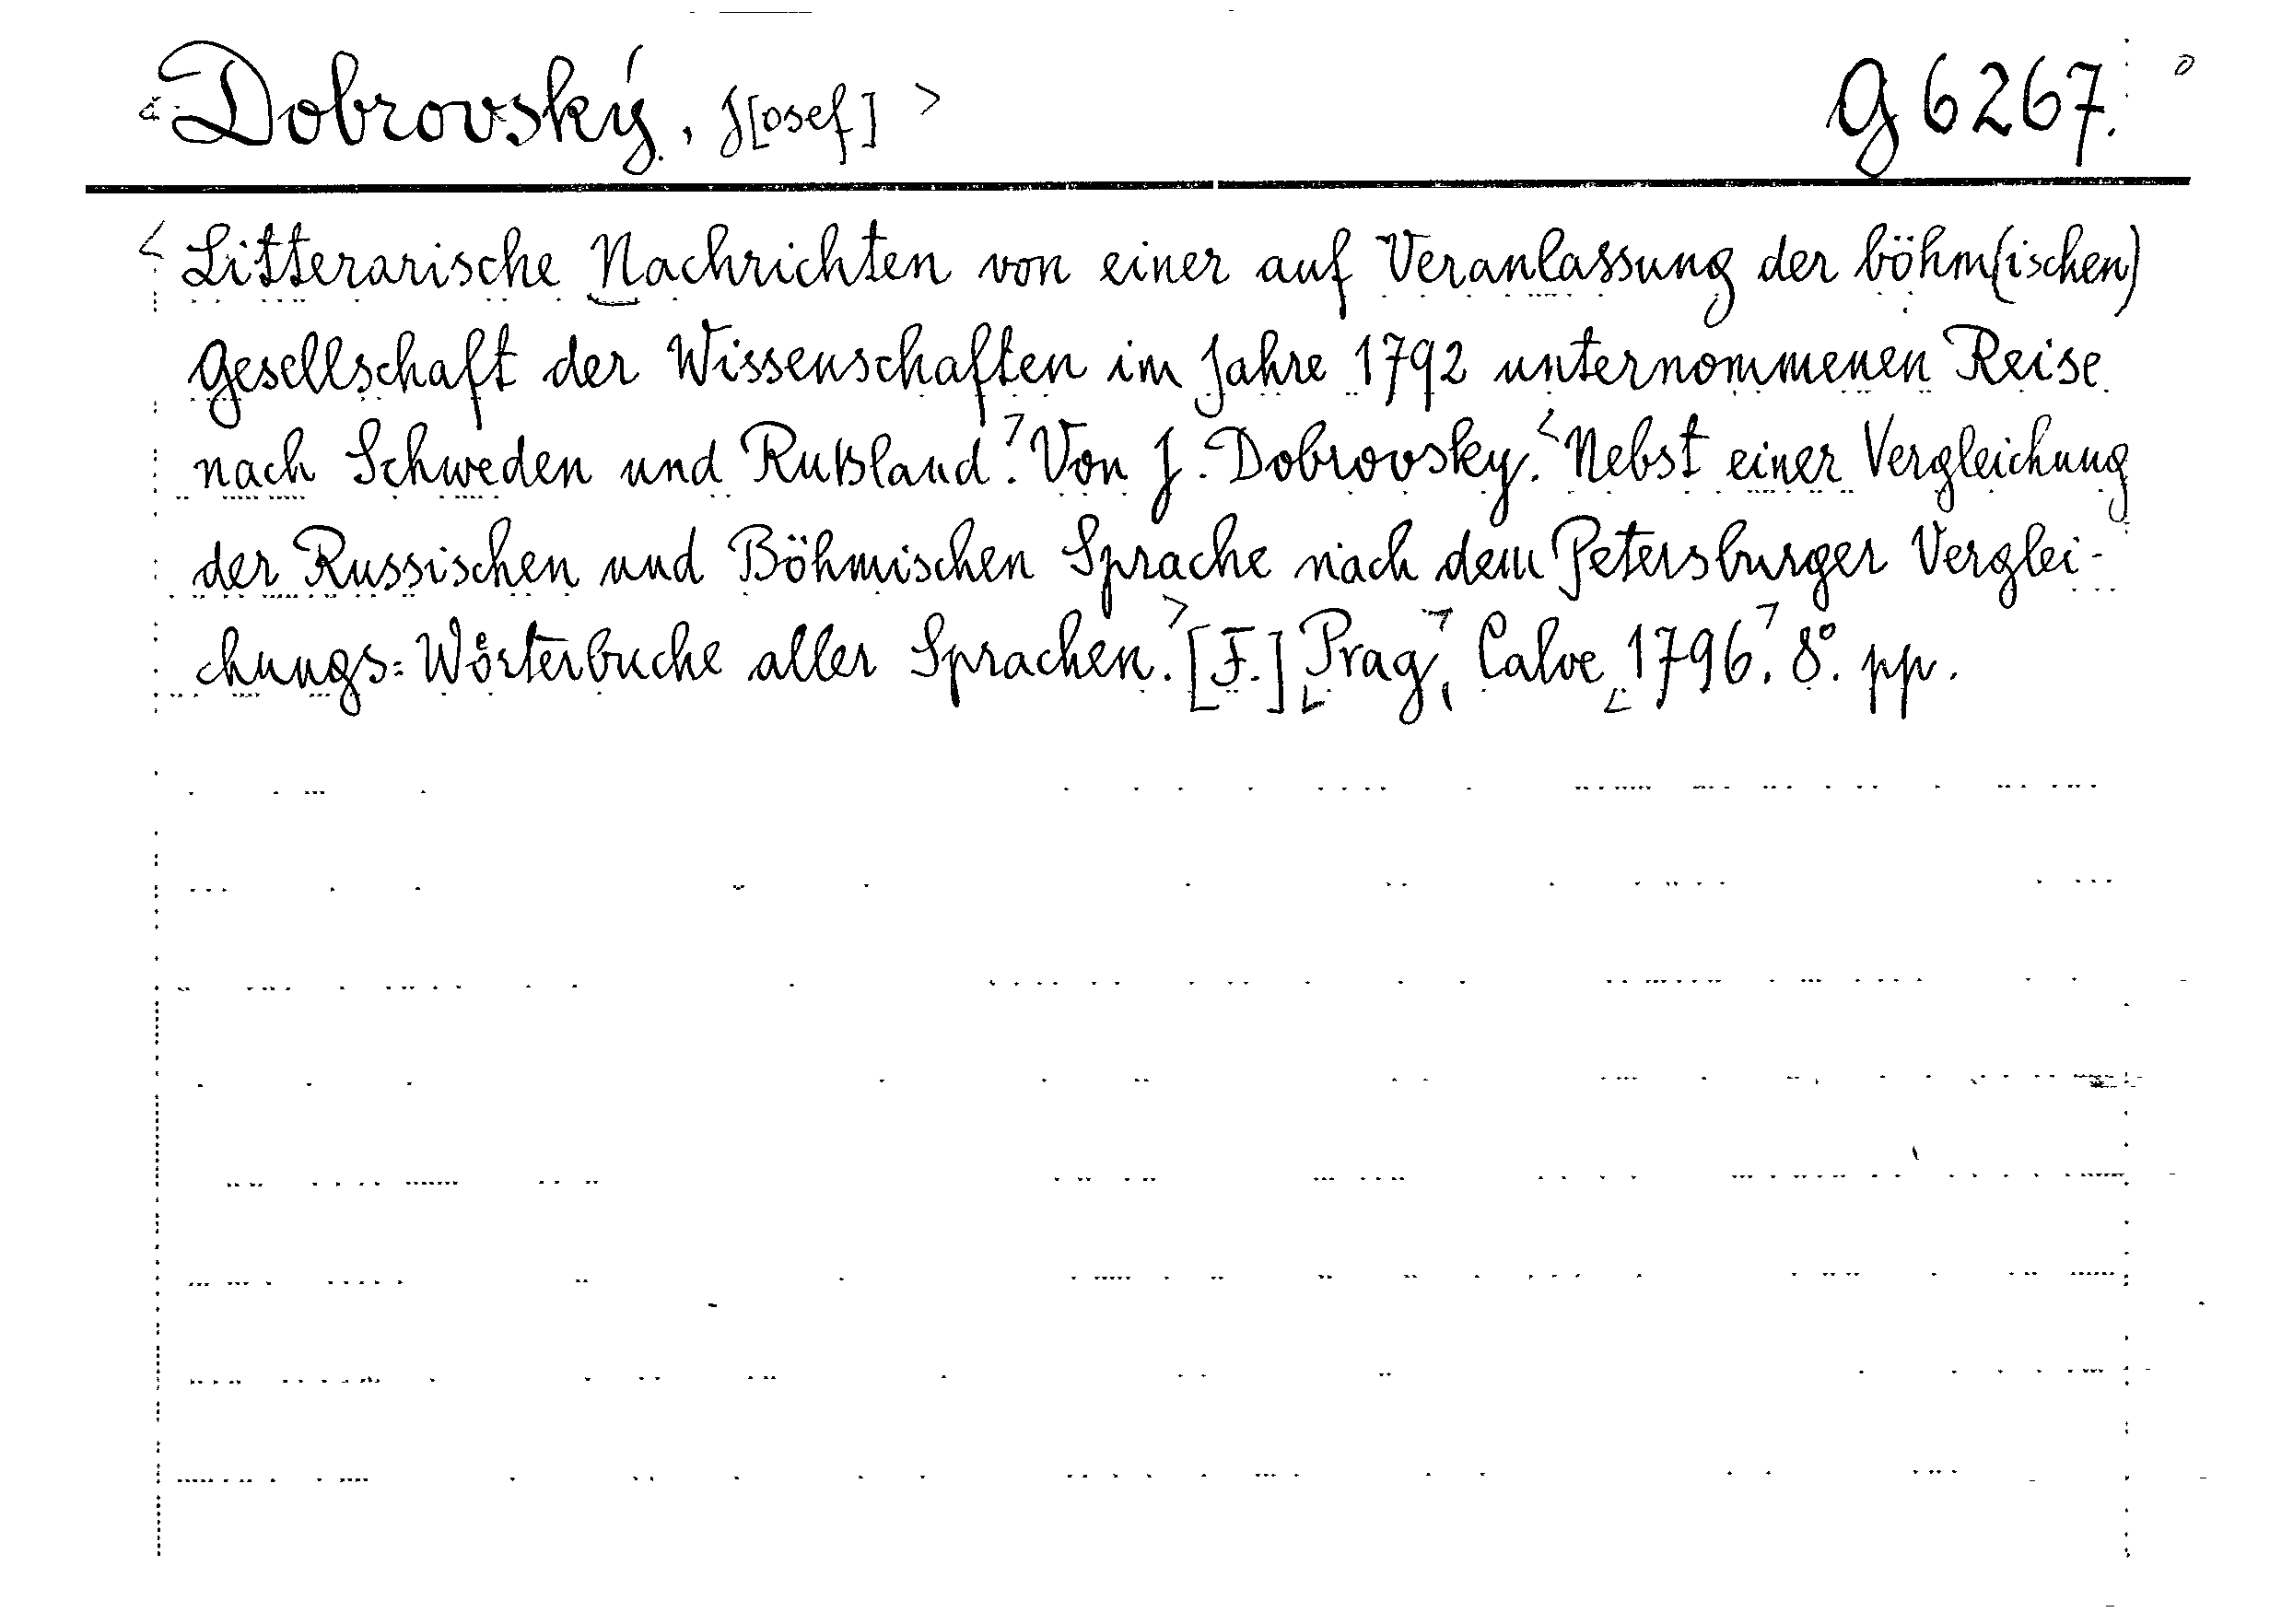 <Dobrovský, J[osef]> G 6267.
<Litterarische Nachrichten von einer auf Veranlassung der böhm(ischen)
Gesellschaft der Wissenschaften im Jahre 1792 unternommenen Reise
nach Schweden und Rußland.> Von J. Dobrovsky. <Nebst einer Vergleichung
der Russischen und Böhmischen Sprache nach dem Petersburger Verglei-
chungs=Wörterbuche aller Sprachen.> [F.] <Prag>, Calve <1796>. 8°. pp.